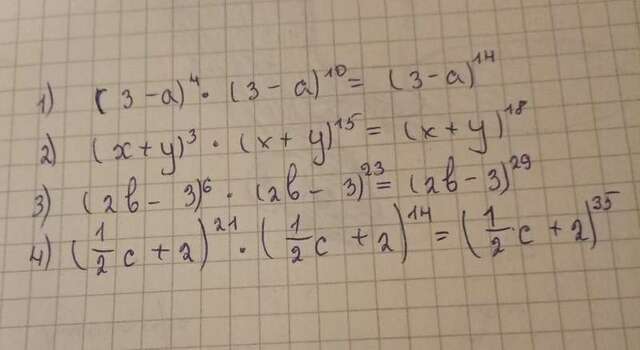 1) (3-a)⁴ · (3-a)¹⁰ = (3-a)¹⁴
2) (x+y)³ · (x+y)¹⁵ = (x+y)¹⁸
3) (2b-3)⁶ · (2b-3)²³ = (2b-3)²⁹
4) (1/2 c + 2)²¹ · (1/2 c + 2)¹⁴ = (1/2 c + 2)³⁵